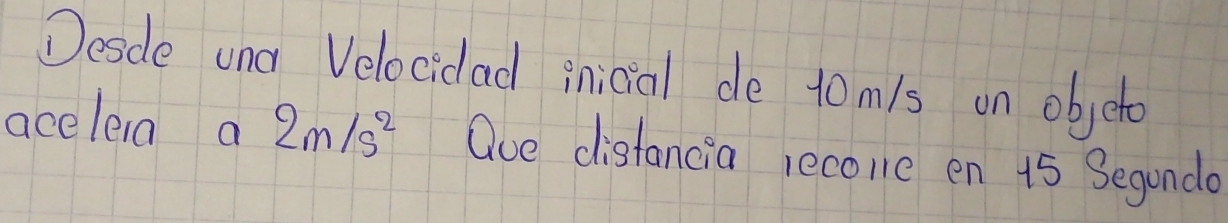 Desde una Velocidad inicial de 10m/s un objeto
acelera a 2m/s² Que distancia recorre en 15 Segundo